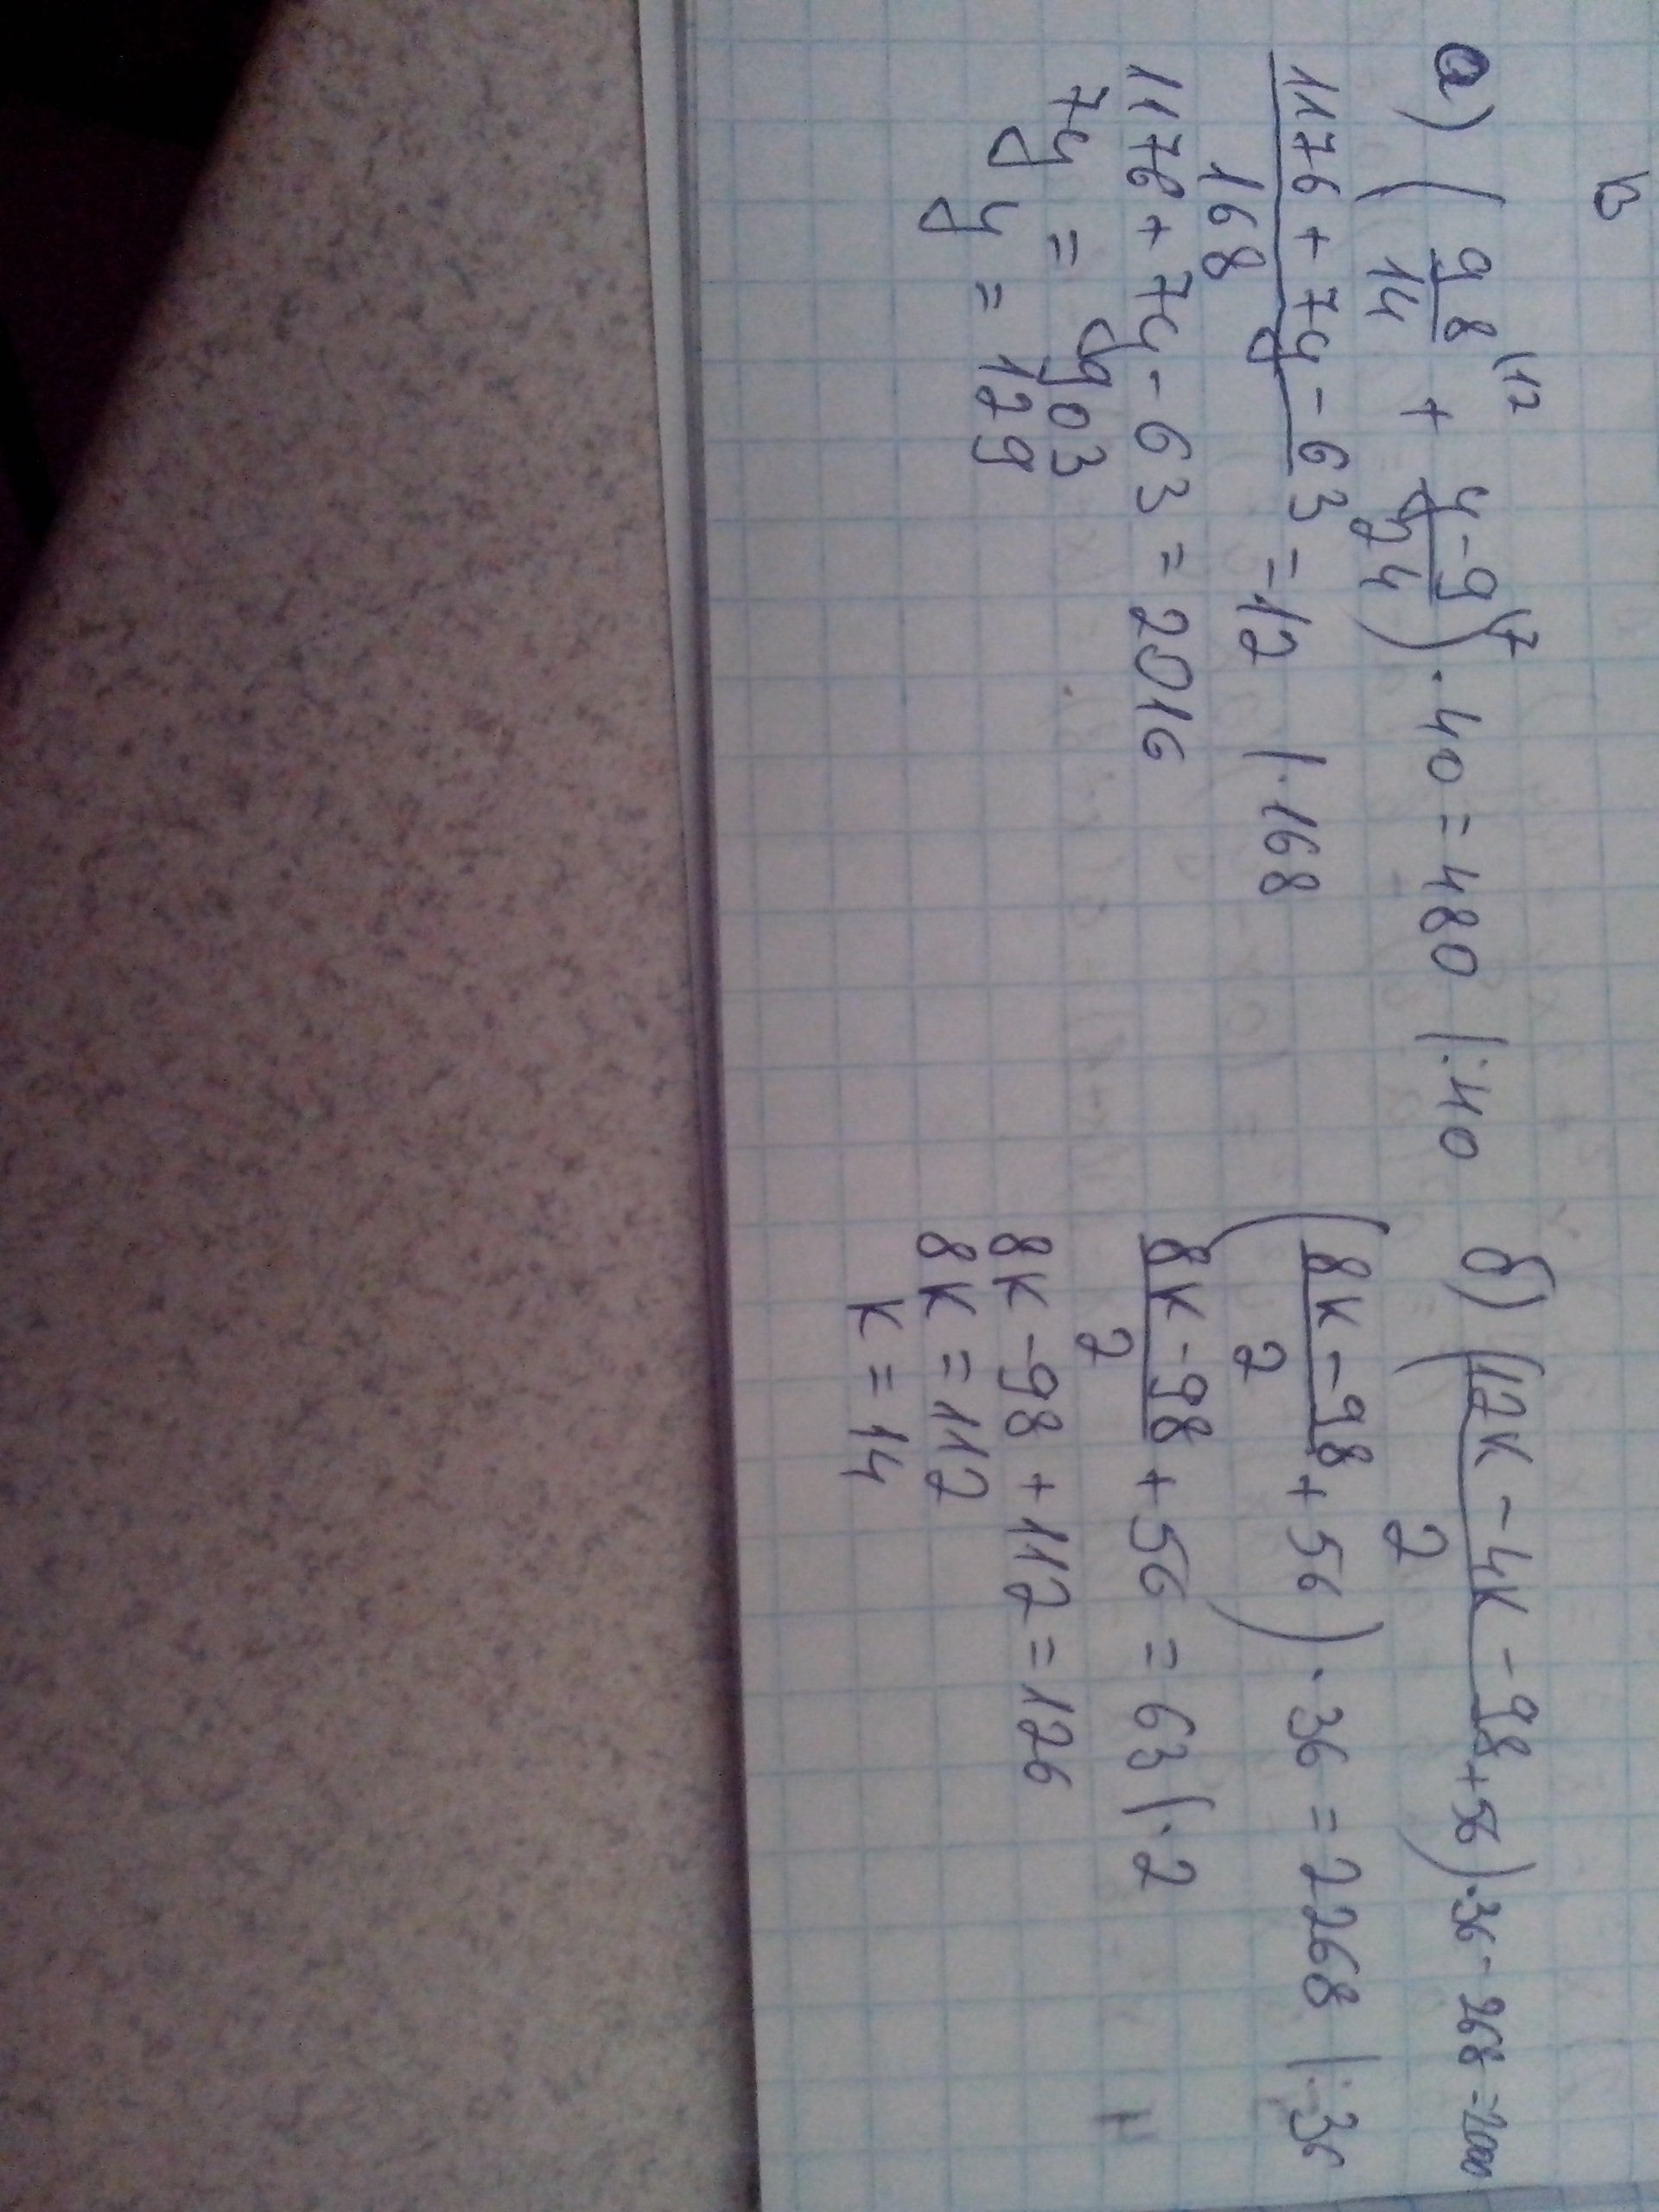 а) ( 98/14 (12 + y-9/24 (7 ) · 40 = 480 |:40
1176 + 7y - 63 / 168 = 12 |·168
1176 + 7y - 63 = 2016
7y = 903
y = 129
б) ( 12к - 4к - 98 / 2 + 56 ) · 36 - 268 = 2000
( 8к - 98 / 2 + 56 ) · 36 = 2268 |:36
8к - 98 / 2 + 56 = 63 |·2
8к - 98 + 112 = 126
8к = 112
к = 14